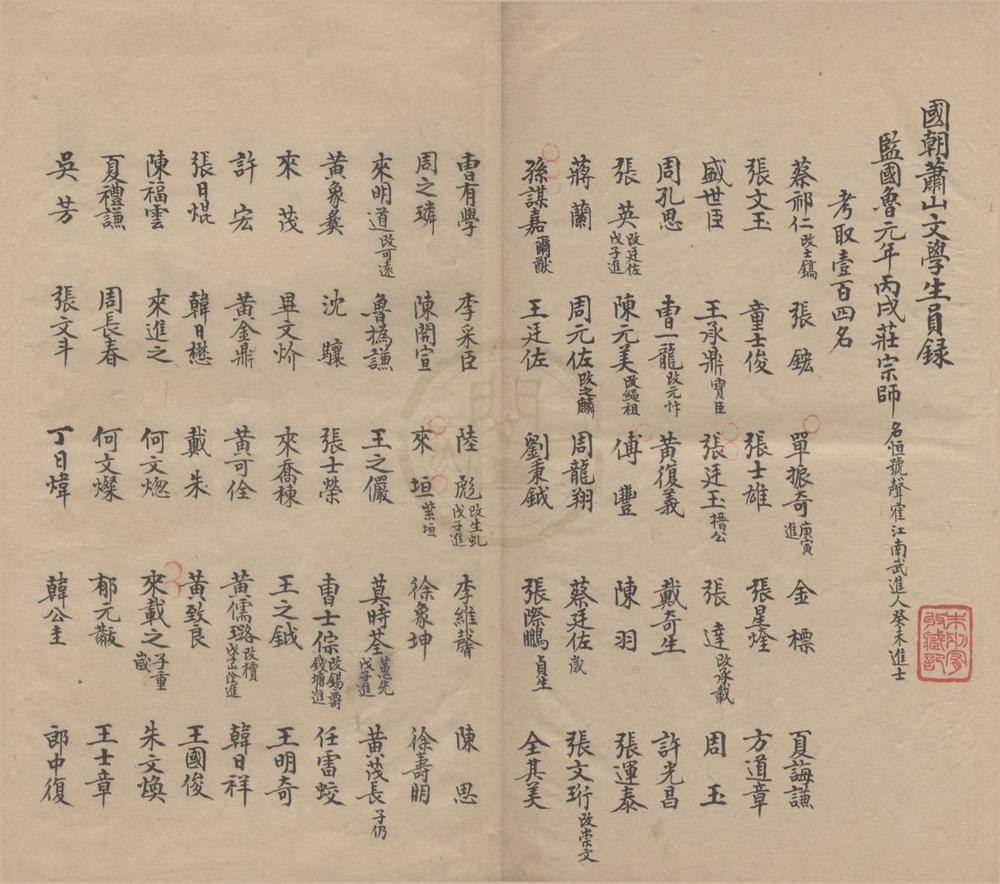 國朝蕭山文學生員録
監國魯元年丙戌莊宗師 名恒號聲寉江南武進人癸未進士
考取壹百四名
蔡祁仁 改士鎬 張鋐 單振奇 庚寅進 金標 夏誨謙
張文玉 童士俊 張士雄 張星煃 方道章
盛世臣 王承鼎 寶臣 張廷玉 搢公 張達 改承載 周玉
周孔思 曹一龍 改元忭 黃復義 戴奇生 許光昌
張英 改廷佐 戊子進 陳元美 改繩祖 傅豐 陳羽 張運泰
蔣蘭 周元佐 改之麟 周龍翔 蔡廷佐 歲 張文珩 改崇文
孫謀嘉 爾猷 王廷佐 劉秉鉞 張際鵬 貞生 全其美
曹有學 李采臣 陸彪 改生虬 戊子進 李維馨 陳思
周之璘 陳開宣 來垣 紫垣 徐象坤 徐壽明
來明道 改可遠 魯撝謙 王之儼 莫時荃 蕙先 戊子進 黃茂長 子仍
黃象彝 沈驤 張士榮 曹士倧 改錫爵 錢塘進 任雷蛟
來茂 畢文炌 來喬棟 王之鉞 王明奇
許宏 黃金鼎 黃可佺 黃儒璐 改㯋 戊子進 韓日祥
張日焜 韓日懋 戴朱 黃致良 王國俊
陳福雲 來進之 何文煾 來載之 子重 歲 朱文煥
夏禮謙 周長春 何文燦 郁元黻 王士章
吳芳 張文斗 丁日煒 韓公圭 郎中復
朱別宥收藏記